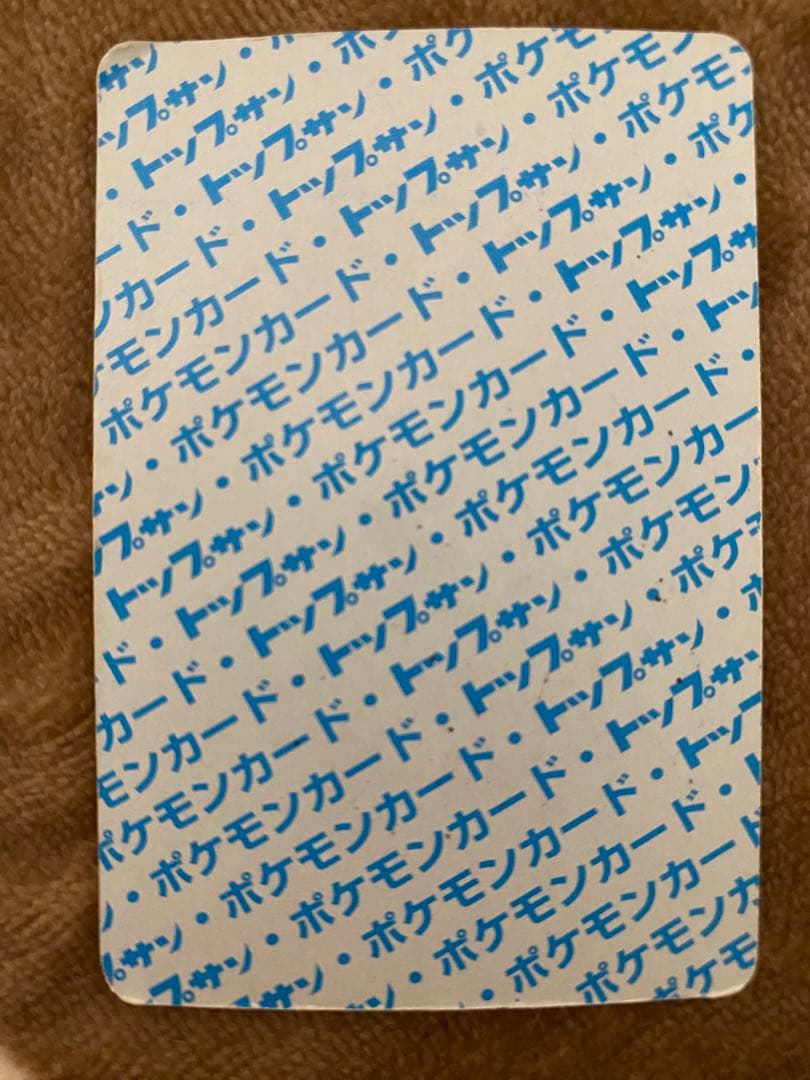 サン・
ップサン・
・トップサン・ポ
ード・トップサン・ポケ
ンカード・トップサン・ポケモ
ケモンカード・トップサン・ポケモン
ポケモンカード・トップサン・ポケモン
サン・ポケモンカード・トップサン・ポケ
プサン・ポケモンカード・トップサン・
トップサン・ポケモンカード・トップサ
ド・トップサン・ポケモンカード・トッ
カード・トップサン・ポケモンカード・
モンカード・トップサン・ポケモンカー
ポケモンカード・トップサン・ポケモン
・ポケモンカード・トップサン・ポケ
サン・ポケモンカード・トップサン・ポ
プサン・ポケモンカード・トップサン
サン・ポケモンカード・トップ
・ポケモンカード・ト
・ポケモンカード
ポケモンカ
ポケモ